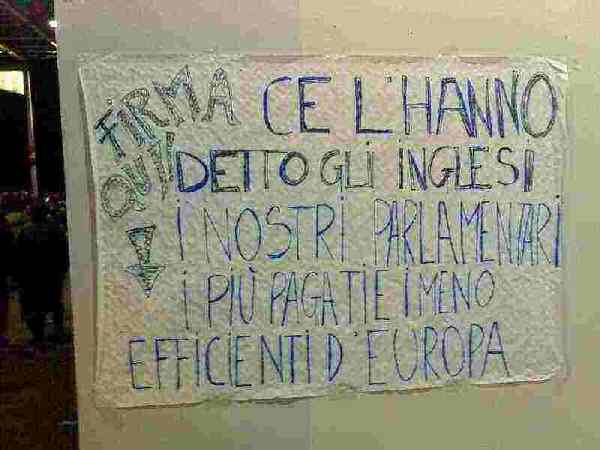 FIRMA QUI!
CE L'HANNO
DETTO GLI INGLESI
I NOSTRI PARLAMENTARI
I PIÙ PAGATI E I MENO
EFFICENTI D'EUROPA